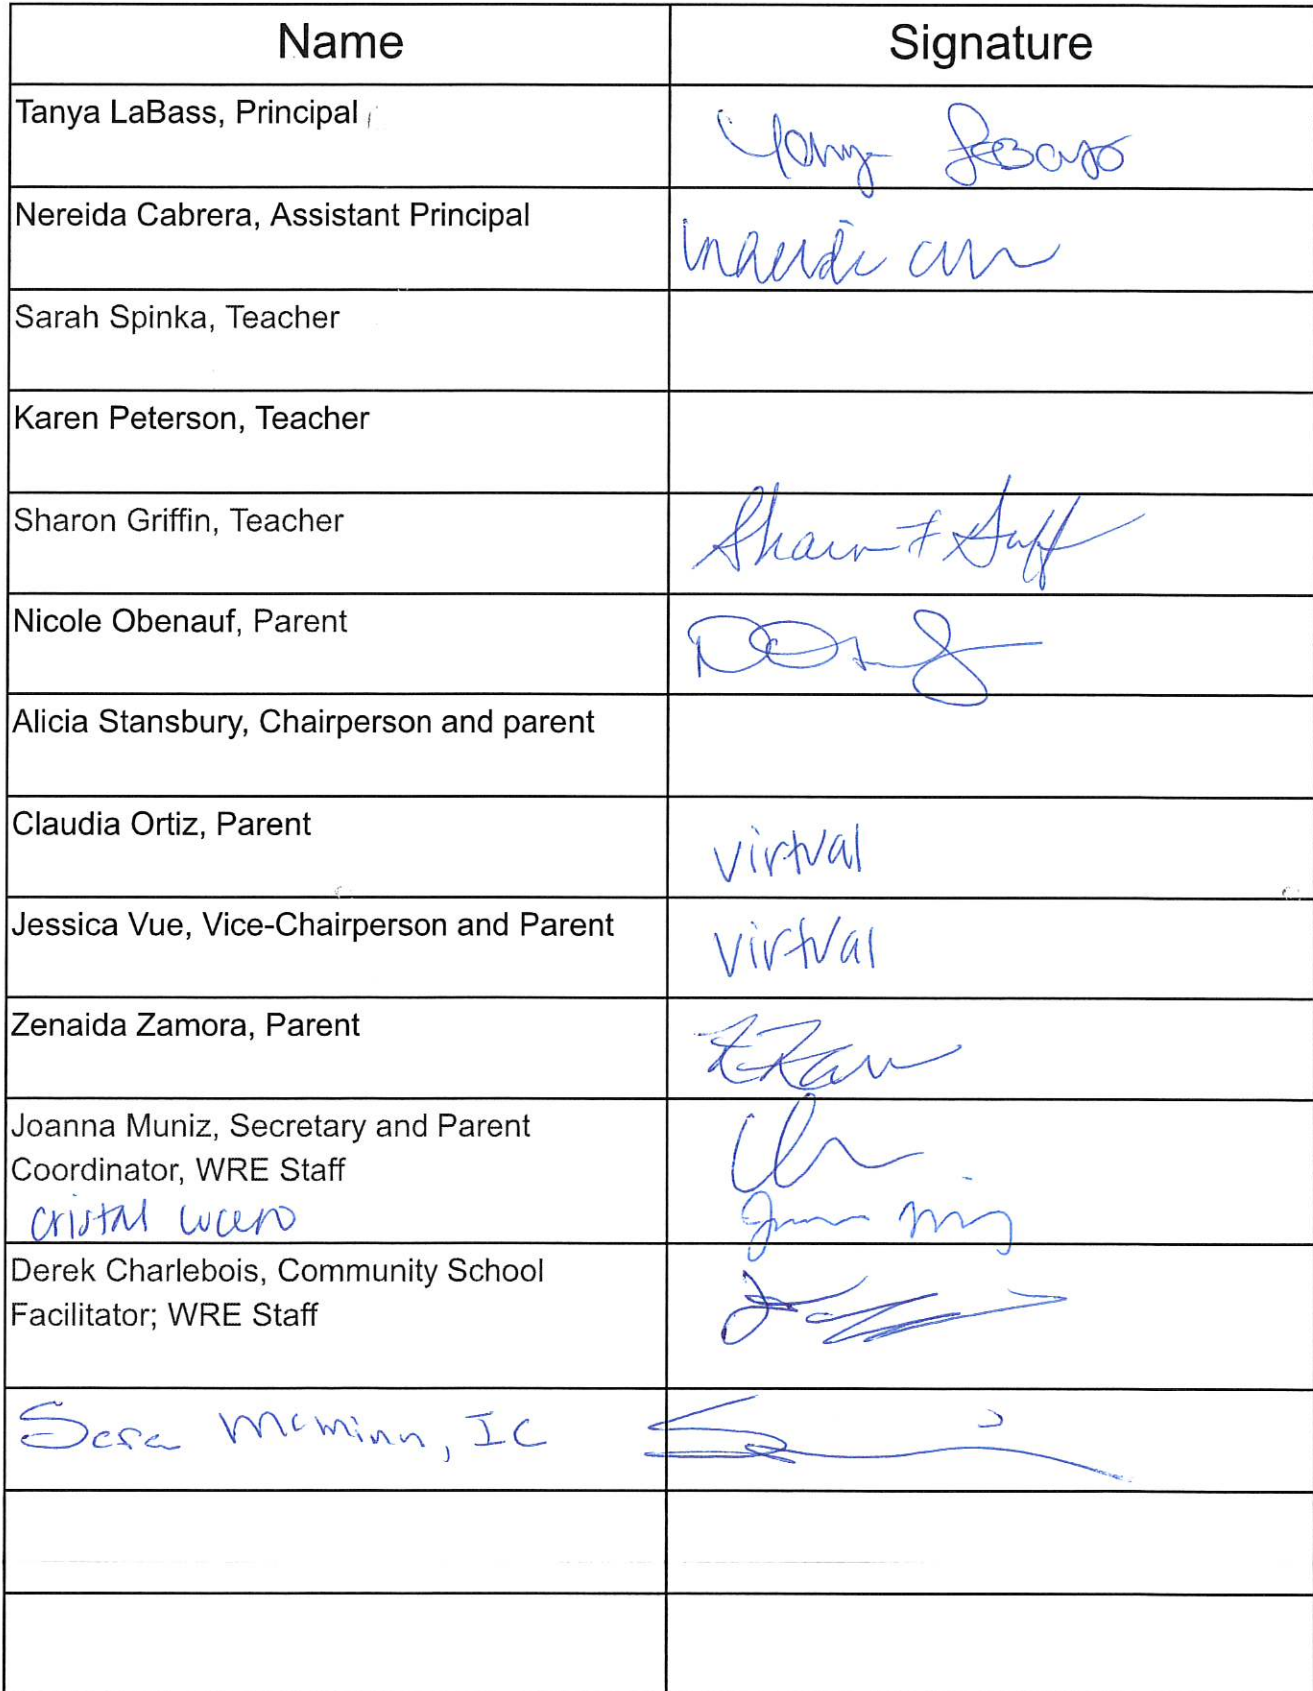 Name Signature
Tanya LaBass, Principal
Nereida Cabrera, Assistant Principal
Sarah Spinka, Teacher
Karen Peterson, Teacher
Sharon Griffin, Teacher
Nicole Obenauf, Parent
Alicia Stansbury, Chairperson and parent
Claudia Ortiz, Parent virtual
Jessica Vue, Vice-Chairperson and Parent virtual
Zenaida Zamora, Parent
Joanna Muniz, Secretary and Parent
Coordinator, WRE Staff
cristal lucero
Derek Charlebois, Community School
Facilitator; WRE Staff
Sara McMinn, IC